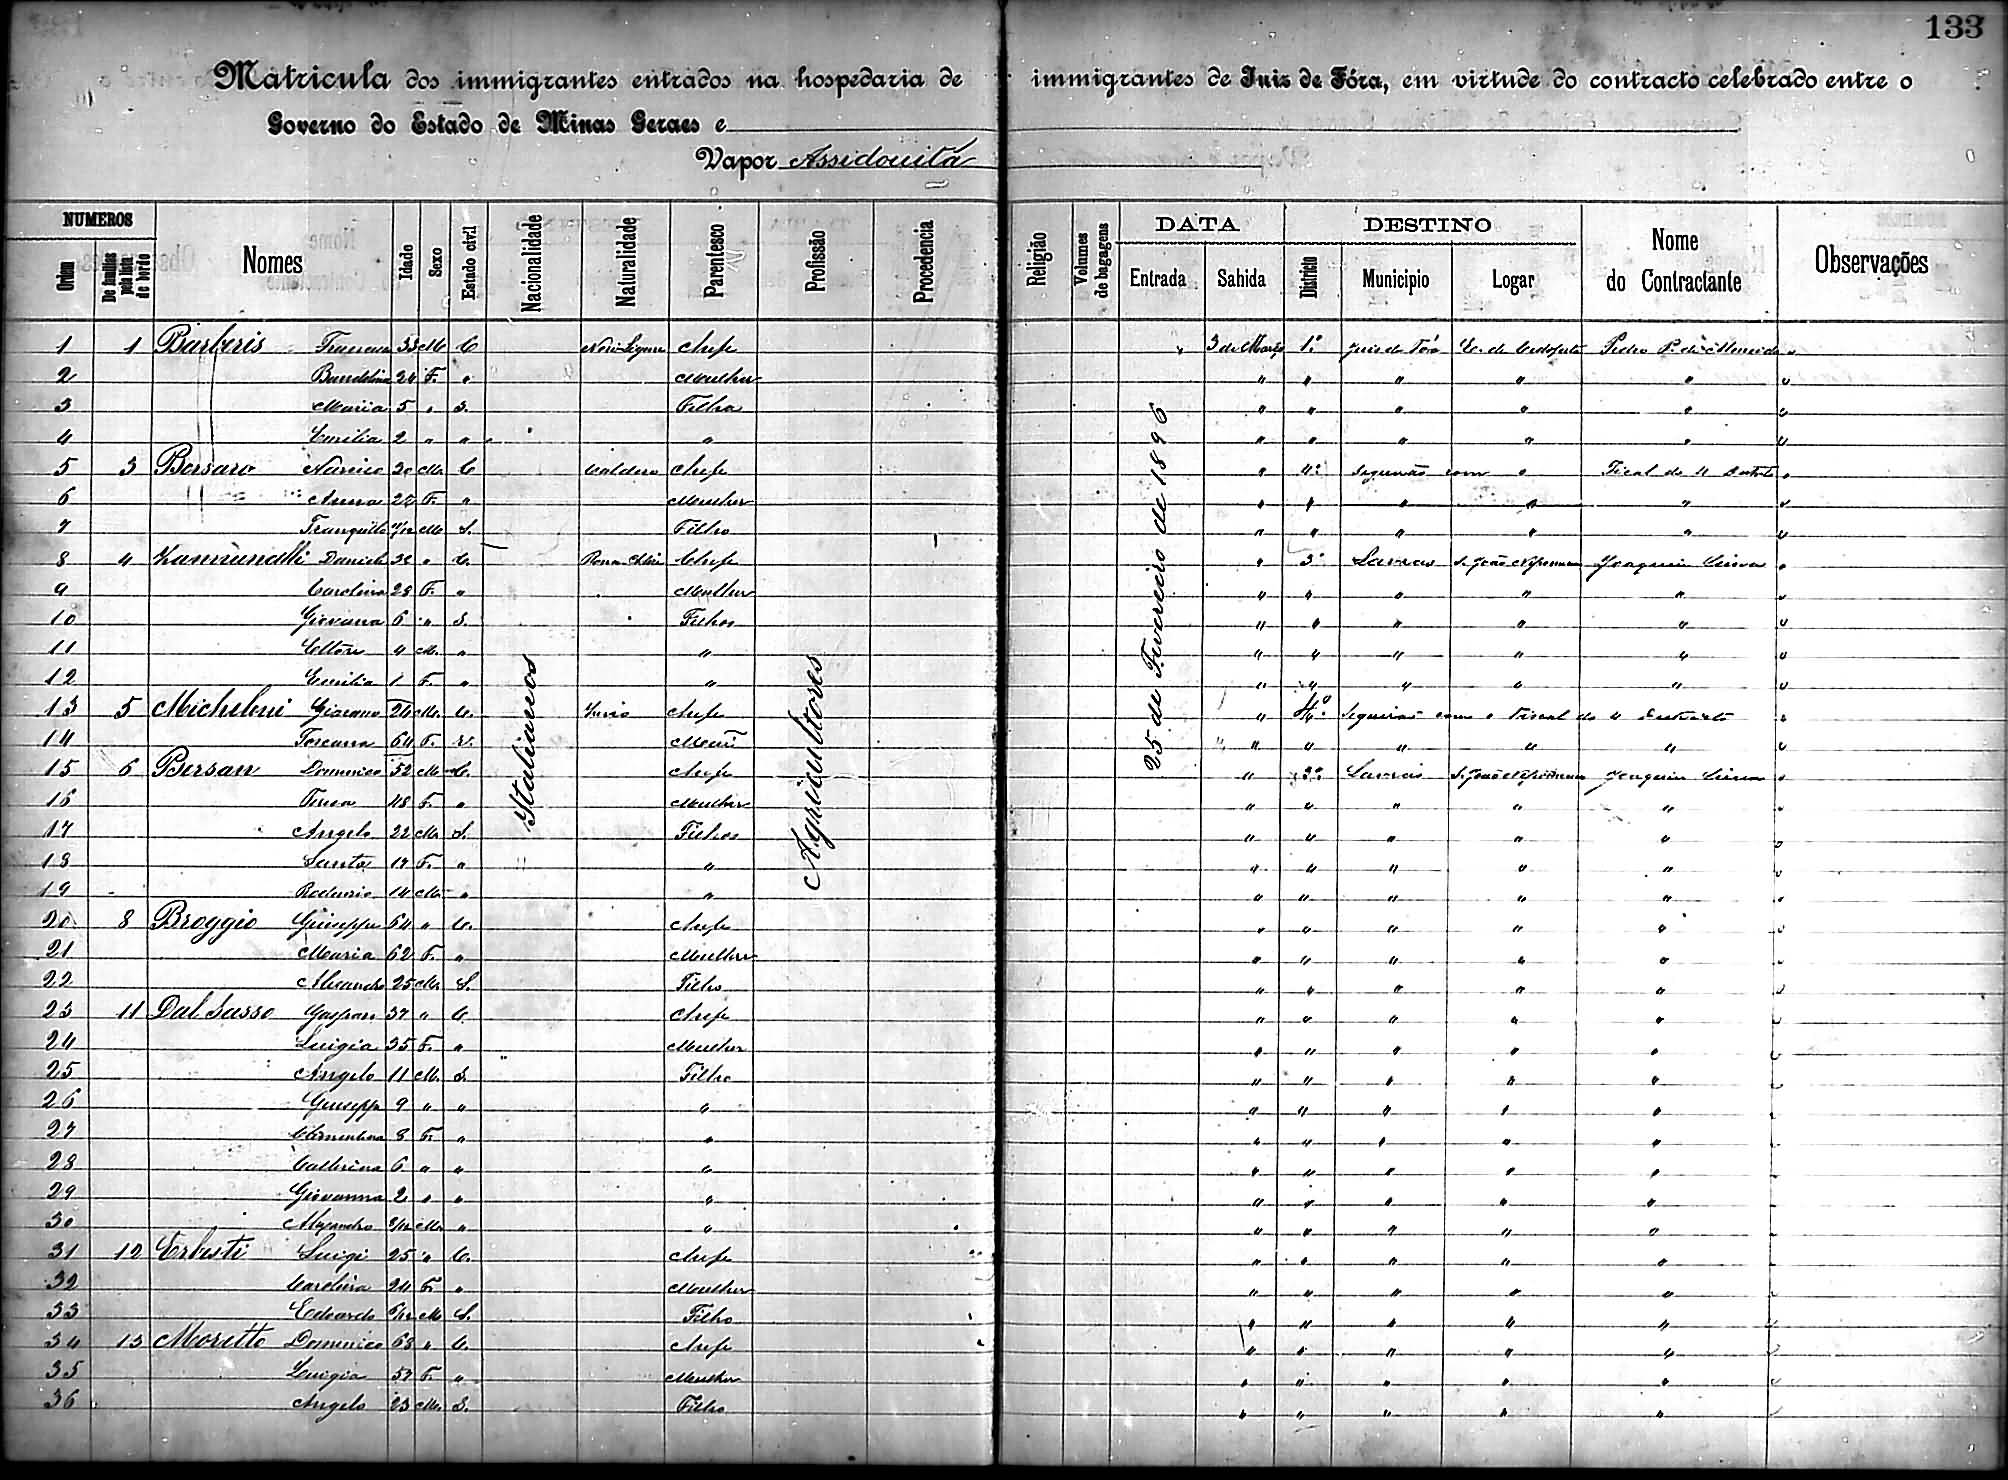 133
Matricula dos immigrantes entrados na hospedaria de immigrantes de Juiz de Fóra, em virtude do contracto celebrado entre o
Governo do Estado de Minas Geraes e
Vapor Assidouita
NUMEROS Nomes Idade Sexo Estado civil Nacionalidade Naturalidade Parentesco Profissão Procedencia Religião Volumes de bagagens DATA DESTINO Nome do Contractante Observações
Ordem De familias pela lista de bordo Entrada Sahida Districto Municipio Logar
Italianos
Agricultores
25 de Fevereiro de 1896
1 1 Barberis 33 M C Chefe 3 de Março 1º Juiz de Fóra Pedro P. de
2 24 F. " Mulher " " " " " "
3 Maria 5 " S. Filha " " " " " "
4 Emilia 2 " " " " " " " " "
5 3 Bersaro Narciso 30 M. C Chefe " 4º com o Fiscal do 4 "
6 Anna 22 F. " Mulher " " " " " "
7 Tranquillo M S. Filho " " " " " "
8 4 Daniele 32 " C. Chefe " 3º Lavras S. João Nepomuceno Joaquim "
9 Carolina 28 F. " Mulher " " " " " "
10 Giovana 6 " S. Filhos " " " " " "
11 Ettore 4 M. " " " " " " " "
12 Emilia 1 F. " " " " " " " "
13 5 Michelini Giacomo 26 M. C. Chefe " 4º com o Fiscal do 4 "
14 Toscana 64 F. V. Mãi " " " " " "
15 6 Bersan Domenico 52 M C. Chefe " 3º Lavras S. João Nepomuceno Joaquim "
16 Teresa 48 F. " Mulher " " " " " "
17 Angelo 22 M S. Filhos " " " " " "
18 Santa 17 F. " " " " " " " "
19 14 M " " " " " " " "
20 8 Broggio Giuseppe 64 " C. Chefe " " " " " "
21 Maria 62 F. " Mulher " " " " " "
22 25 M. S. Filho " " " " " "
23 11 Dal Sasso Gaspare 37 " C. Chefe " " " " " "
24 Luigia 35 F. " Mulher " " " " " "
25 Angelo 11 M. S. Filho " " " " " "
26 Giuseppe 9 " " " " " " " " "
27 Clementina 8 F. " " " " " " " "
28 Catterina 6 " " " " " " " " "
29 Giovanna 2 " " " " " " " " "
30 M. " " " " " " " "
31 12 Erbisti Luigi 25 " C. Chefe " " " " " "
32 Carolina 24 F. " Mulher " " " " " "
33 Edoardo M S. Filho " " " " " "
34 13 Moretto Domenico 63 " C. Chefe " " " " " "
35 Luigia 57 F. " Mulher " " " " " "
36 Angelo 23 M. S. Filho " " " " " "